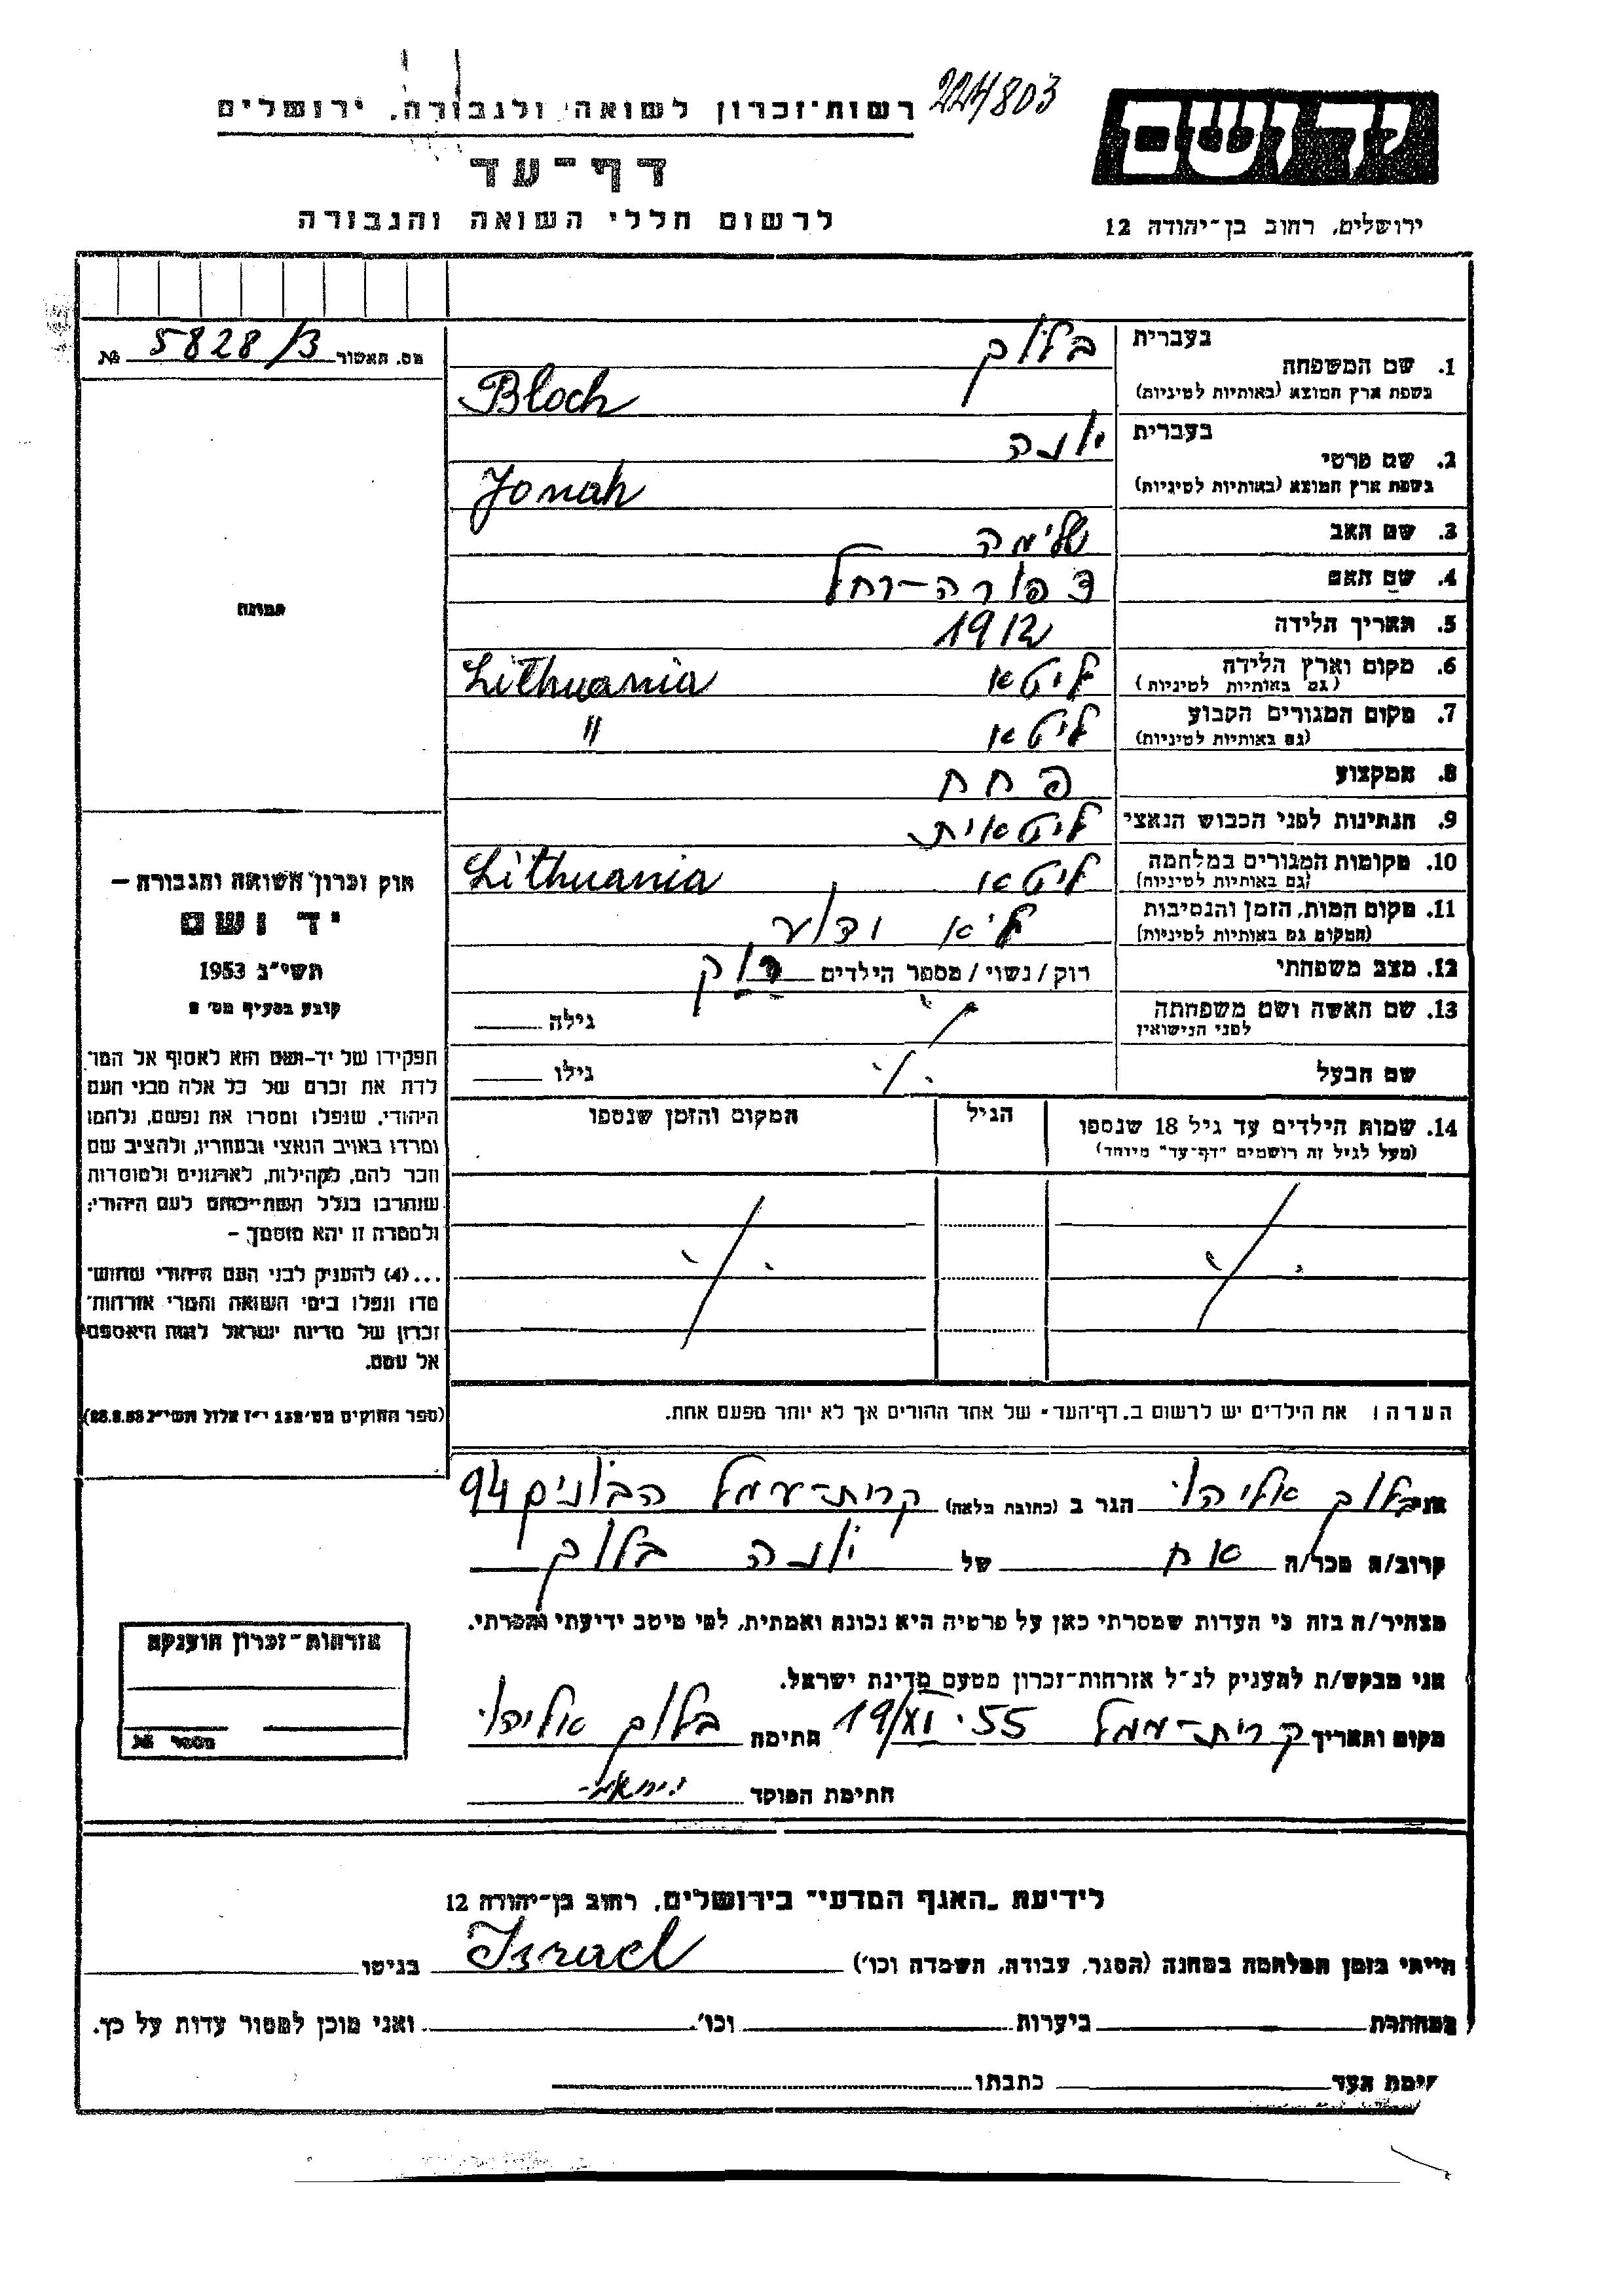 רשות־זכרון לשואה ולגבורה, ירושלים
224/803
יד ושם
דף־עד
לרשום חללי השואה והגבורה
ירושלים, רחוב בן־יהודה 12
מס. האשור 5828/3 №
1. שם המשפחה
בעברית בלוך
בשפת ארץ המוצא (באותיות לטיניות) Bloch
2. שם פרטי
בעברית יונה
בשפת ארץ המוצא (באותיות לטיניות) Jonah
3. שם האב שלימה
4. שם האם צפורה-רחל
5. תאריך הלידה 1912
6. מקום וארץ הלידה ליטא Lithuania
(גם באותיות לטיניות)
7. מקום המגורים הקבוע ליטא "
(גם באותיות לטיניות)
8. המקצוע פחח
9. הנתינות לפני הכבוש הנאצי ליטאית
10. מקומות המגורים במלחמה ליטא Lithuania
(גם באותיות לטיניות)
11. מקום המות, הזמן והנסיבות לא ידוע
(המקום גם באותיות לטיניות)
12. מצב משפחתי רוק/נשוי/מספר הילדים רווק
13. שם האשה ושם משפחתה גילה
לפני הנישואין
שם הבעל גילו
14. שמות הילדים עד גיל 18 שנספו הגיל המקום והזמן שנספו
(מעל לגיל זה רושמים "דף־עד" מיוחד)
תמונה
חוק זכרון השואה והגבורה –
יד ושם
תשי"ג 1953
קובע בסעיף מס' 2
תפקידו של יד-ושם הוא לאסוף אל המו־
לדת את זכרם של כל אלה מבני העם
היהודי, שנפלו ומסרו את נפשם, נלחמו
ומרדו באויב הנאצי ובעוזריו, ולהציב שם
וזכר להם, לקהילות, לארגונים ולמוסדות
שנחרבו בגלל השתייכותם לעם היהודי;
ולמטרה זו יהא מוסמך –
...(4) להעניק לבני העם היהודי שהוש־
מדו ונפלו בימי השואה והמרי אזרחות־
זכרון של מדינת ישראל לאות היאספם
אל עמם.
(ספר החוקים מס' 132 י"ז אלול תשי"ג 28.8.53)
הערה: את הילדים יש לרשום ב"דף־העד" של אחד ההורים אך לא יותר מפעם אחת.
אני בלוך אליהו הגר ב (כתובת מלאה) קרית-עמל הבונים 94
קרוב/ה מכר/ה אח של יונה בלוך
מצהיר/ה בזה כי העדות שמסרתי כאן על פרטיה היא נכונה ואמתית, לפי מיטב ידיעתי והכרתי.
אני מבקש/ת להעניק לנ"ל אזרחות־זכרון מטעם מדינת ישראל.
מקום ותאריך קרית-עמל 19/XI.55 חתימה בלוך אליהו
חתימת הפוקד
אזרחות־זכרון הוענקה
מספר №
לידיעת "האגף המדעי" בירושלים, רחוב בן־יהודה 12
הייתי בזמן המלחמה במחנה (הסגר, עבודה, השמדה וכו') Israel בגיטו
במחתרת ביערות וכו' ואני מוכן למסור עדות על כך.
העד כתבתו